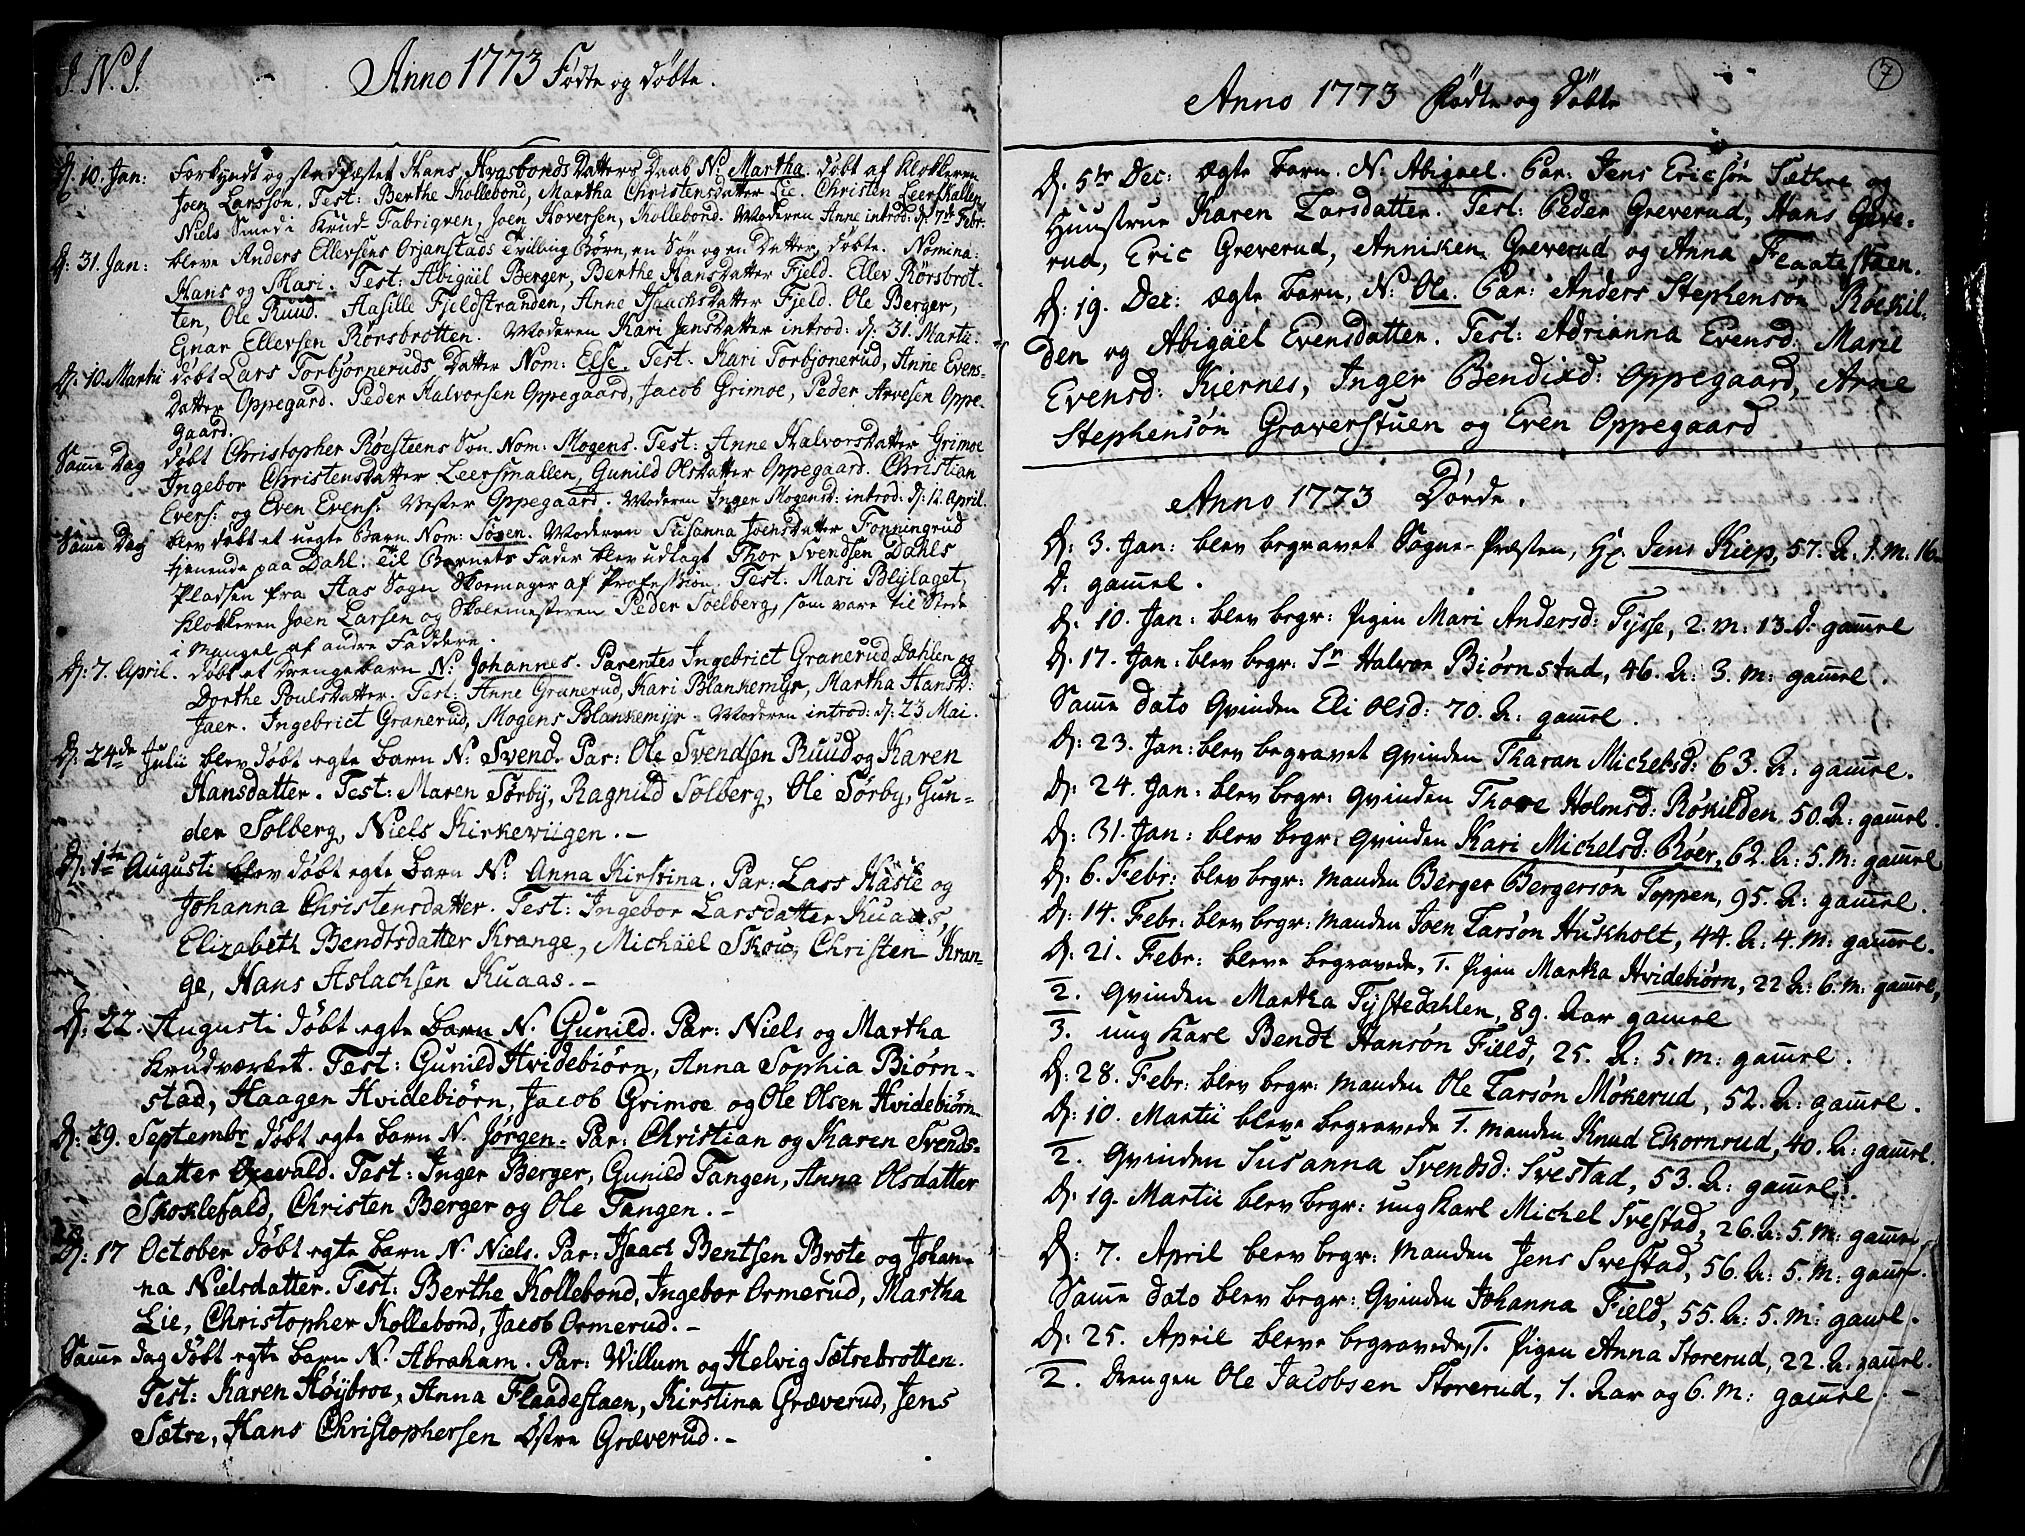 J. N. J. Anno 1773 Födte og Döbte.
D: 10. Jan: Forkyndt og stadfæstet Hans Hvasbonds Datters Daab N. Martha. döbt af Klokkeren
Joen Larssön. Test: Berthe Kollebond, Martha Christensdatter Lie. Christen Leerskallen,
Niels Smed i Krud-Fabriqven, Joen Hoversen, Kollebond. Moderen Anne introd: d: 7de Febr:
D: 31. Jan: bleve Anders Ellevsens Orjanstads Tvilling Börn, en Sön og en Datter, döbte. Nomina:
Hans og Mari. Test: Abigäel Berger, Berthe Hansdatter Fjeld. Ellev Rörsbrot-
ten, Ole Ruud. Aasille Fjeldstranden, Anne Isaachsdatter Fjeld. Ole Berger,
Ejnar Ellevsen Rörsbrotten. Moderen Kari Jensdatter introd: d: 31. Martii.
D: 10. Martii döbt Lars Torbjörneruds Datter Nom: Else. Test. Kari Torbjonerud, Anne Evens-
Datter Oppegard. Peder Halvorsen Oppegaard, Jacob Grimoe, Peder Arvesen Oppe-
gaard.
Samme Dag döbt Christopher Röesteens Sön. Nom: Mogens. Test: Anne Halvorsdatter Grimoe
Ingebor Christensdatter Leersmallen, Gunild Olsdatter Oppegaard. Christian
Evers: og Even Evens: Vester Oppegaard. Moderen Inger Mogensd: introd: d: 12. April.
Samme Dag blev döbt et uegte Barn. Nom: Sören. Moderen Susanna Joensdatter Fonningrud
tjenende paa Dahl. Til Barnets Fader blev udlagt Thor Svendsen Dahls
Pladsen fra Aas Sogn Skoemager af Profession. Test: Mari Blylaget,
Klokkeren Joen Larsen og Skolemesteren Peder Soelberg, som vare til Stede
i Mangel af andre Faddere.
D: 7. April. döbt et Drengebarn N. Johannes. Parentes Ingebrict Granerud Dahlen og
Dorthe Poulsdatter. Test: Anne Granerud, Kari Blankemyr, Martha Hansd:
Jaer. Ingebrict Granerud, Mogens Blankemyr. Moderen introd: d: 23 Mai.
D: 24de Julii blev döbt egte barn N: Svend. Par: Ole Svendsen Ruud og Karen
Hansdatter. Test: Maren Sörby, Ragnild Solberg, Ole Sörby, Gun-
der Solberg, Niels Kirkeviigen.-
D: 1te Augusti blev döbt egte barn N: Anna Kirstina. Par: Lars Haslé og
Johanna Christensdatter. Test: Ingebor Larsdatter Kuaas,
Elizabeth Bendtsdatter Krange, Michäel Skou, Christen Kran-
ge, Hans Aslachsen Kuaas.-
D: 22. Augusti döbt egte barn N. Gunild. Par: Niels og Martha
Krudværket. Test: Gunild Hvidebiörn, Anna Sophia Biörn-
stad, Haagen Hvidebiörn, Jacob Grimoe og Ole Olsen Hvidebiörn
D: 29. Septembr döbt egte barn N. Jörgen. Par: Christian og Karen Svends-
datter Oxevald. Test: Inger Berger, Gunild Tangen, Anna Olsdatter
Skoklefald, Christen Berger og Ole Tangen.-
D: 17 October döbt egte barn N. Niels. Par: Isaach Bentsen Brote og Johan-
na Nielsdatter. Test: Berthe Kollebond, Ingebor Ormerud, Martha
Lie, Christopher Kollebond, Jacob Ormerud.-
Samme dag döbt egte barn N. Abraham. Par: Willum og Helvig Sætrebrotten.
Test: Karen Höybroe, Anna Flaadestaen, Kirstina Græverud, Jens
Sætre, Hans Christophersen Östre Græverud.-
7
Anno 1773 Födte og Döbte
D: 5te Dec: Ægte barn. N: Abigael. Par: Jens Ericsön Sæthre og
Huustrue Karen Larsdatter. Test: Peder Greverud, Hans Greve-
rud, Eric Greverud, Anniken Greverud og Anna Flaatestaen.
D: 19. Dec: Ægte barn, N: Ole. Par: Anders Stephensön Röekil-
den og Abigäel Evensdatter. Test: Adrianna Evensd: Marie
Evensd: Kiernes, Inger Bendixd: Oppegaard, Arne
Stephensön Graverstuen og Even Oppegaard
Anno 1773 Döede.
D: 3. Jan: blev begravet Sogne-Præsten, Hr. Jens Kiep, 57. A: 1. M: 16
D. gamel.
D: 10. Jan: blev begr: Pigen Mari Andersd: Tysse, 2. M: 13. D: gamel
D: 17. Jan: blev begr: Sr Halvor Biörnstad, 46. A: 3. M: gamel.
Samme dato Qvinden Eli Olsd: 70. A: gamel.
D: 23. Jan: blev begravet Qvinden Tharan Michelsd: 63. A: gamel.
D: 24. Jan: blev begr: Qvinden Thore Holmsd: Rökilden, 50. A: gamel.
D: 31. Jan: blev begr: Qvinden Kari Michelsd: Röer, 62. A: 5. M: gamel
D: 6. Febr: blev begr: Manden Berger Bergersön Toppen, 95. A: gamel.
D: 14. Febr: blev begr: Manden Joen Larsön Huskholt, 44. A: 4. M: gamel.
D: 21. Febr: bleve begravede, 1. Pigen Martha Hvidebiörn, 22 A: 6. M: gamel,
2. Qvinden Martha Tystedahlen, 89. Aar gamel
3. ung Karl Bendt Hansön Field, 25. A: 5. M: gamel.
D: 28. Febr: blev begr: Manden Ole Larsön Mökerud, 52. A: gamel.
D: 10. Martii bleve begravede 1. Manden Knud Ekornrud, 40. A: gamel.
2. Qvinden Susanna Svendsd: Svestad, 53. A: gamel.
D: 19. Martii blev begr: ung Karl Michel Svestad, 26. A: 5. M: gamel
D: 7. April blev begr: Manden Jens Svestad, 56. A: 5. M: gamel.
Samme dato blev begr: Qvinden Johanna Field, 55. A: 5. M: gamel.
D: 25. April bleve begravede, 1. Pigen Anna Storerud, 22. A. gamel.
2. Drengen Ole Jacobsen Storerud, 1. Aar og 6. M: gamel.-